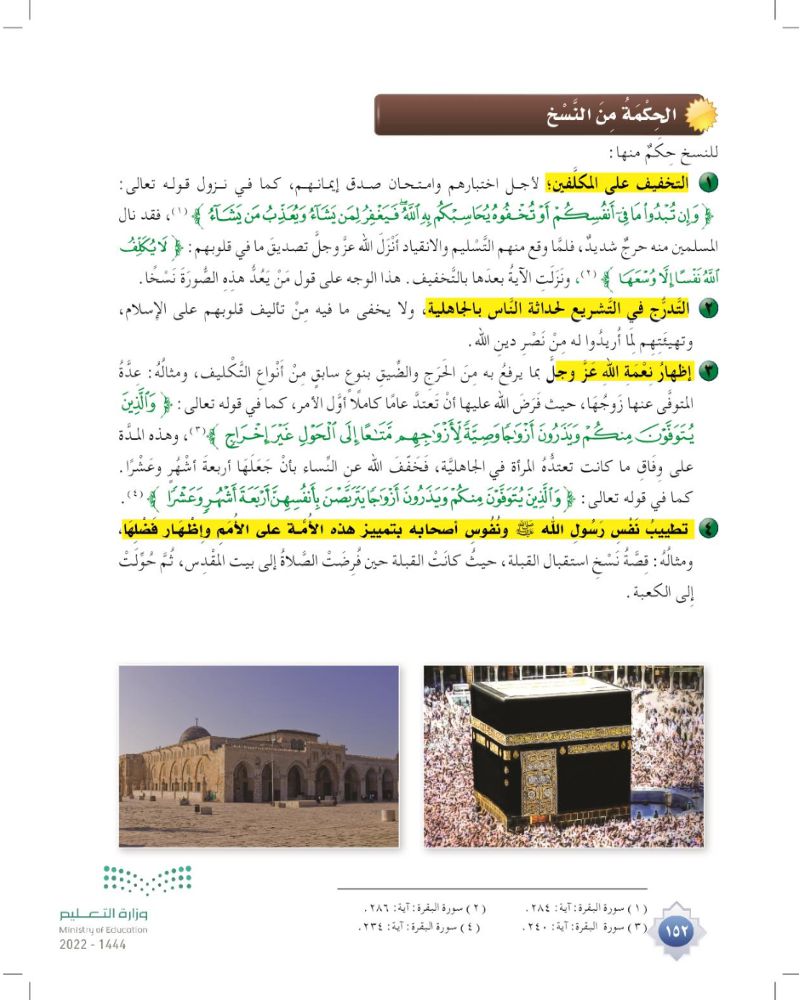 الحِكْمَةُ مِنَ النَّسْخِ
للنسخ حِكَمٌ منها:
١ التخفيف على المكلَّفين؛ لأجل اختبارهم وامتحان صدق إيمانهم، كما في نزول قوله تعالى:
﴿ وَإِن تُبْدُوا مَا فِي أَنفُسِكُمْ أَوْ تُخْفُوهُ يُحَاسِبْكُم بِهِ اللَّهُ فَيَغْفِرُ لِمَن يَشَاءُ وَيُعَذِّبُ مَن يَشَاءُ ﴾(١)، فقد نال
المسلمين منه حرجٌ شديدٌ، فلمَّا وقع منهم التَّسْليم والانقياد أنْزَلَ الله عزَّ وجلَّ تصديقَ ما في قلوبهم: ﴿ لَا يُكَلِّفُ
اللَّهُ نَفْسًا إِلَّا وُسْعَهَا ﴾(٢)، ونَزَلَتِ الآيةُ بعدَها بالتَّخفيف. هذا الوجه على قول مَنْ يَعُدُّ هذِهِ الصُّورَةَ نَسْخًا.
٢ التَّدرُّج في التَّشريع لحداثة النَّاس بالجاهلية، ولا يخفى ما فيه مِنْ تأليف قلوبهم على الإسلام،
وتهيئَتِهِم لِمَا أُريدُوا له مِنْ نَصْرِ دينِ الله.
٣ إظهارُ نِعْمَةِ اللهِ عَزَّ وجلَّ بما يرفعُ به مِنَ الحَرَجِ والضِّيقِ بنوعٍ سابقٍ مِنْ أَنْواعِ التَّكْليف، ومثالُهُ: عِدَّةُ
المتوفَّى عنها زَوجُهَا، حيث فَرَضَ الله عليها أنْ تَعتدَّ عامًا كاملًا أوَّل الأمر، كما في قوله تعالى: ﴿ وَالَّذِينَ
يُتَوَفَّوْنَ مِنكُمْ وَيَذَرُونَ أَزْوَاجًا وَصِيَّةً لِّأَزْوَاجِهِم مَّتَاعًا إِلَى الْحَوْلِ غَيْرَ إِخْرَاجٍ ﴾(٣)، وهذه المدة
على وِفَاقِ ما كانت تعتدُّهُ المرأة في الجاهليَّة، فَخَفَّفَ الله عن النِّساء بأنْ جَعَلَهَا أربعةَ أشْهُرٍ وعَشْرًا.
كما في قوله تعالى: ﴿ وَالَّذِينَ يُتَوَفَّوْنَ مِنكُمْ وَيَذَرُونَ أَزْوَاجًا يَتَرَبَّصْنَ بِأَنفُسِهِنَّ أَرْبَعَةَ أَشْهُرٍ وَعَشْرًا ﴾(٤).
٤ تطييبُ نفْسِ رَسُولِ الله ﷺ ونُفُوسِ أصحابه بتمييز هذه الأمَّة على الأمَمِ وإظْهَار فَضْلِهَا،
ومثالُهُ: قِصَّةُ نَسْخِ استقبال القبلة، حيثُ كانَتْ القبلة حين فُرِضَتْ الصَّلاةُ إلى بيت المقْدِس، ثُمَّ حُوِّلَتْ
إلى الكعبة.
(١) سورة البقرة: آية: ٢٨٤. (٢) سورة البقرة: آية: ٢٨٦.
(٣) سورة البقرة: آية: ٢٤٠. (٤) سورة البقرة: آية: ٢٣٤.
١٥٢
وزارة التعليم
Ministry of Education
2022 - 1444